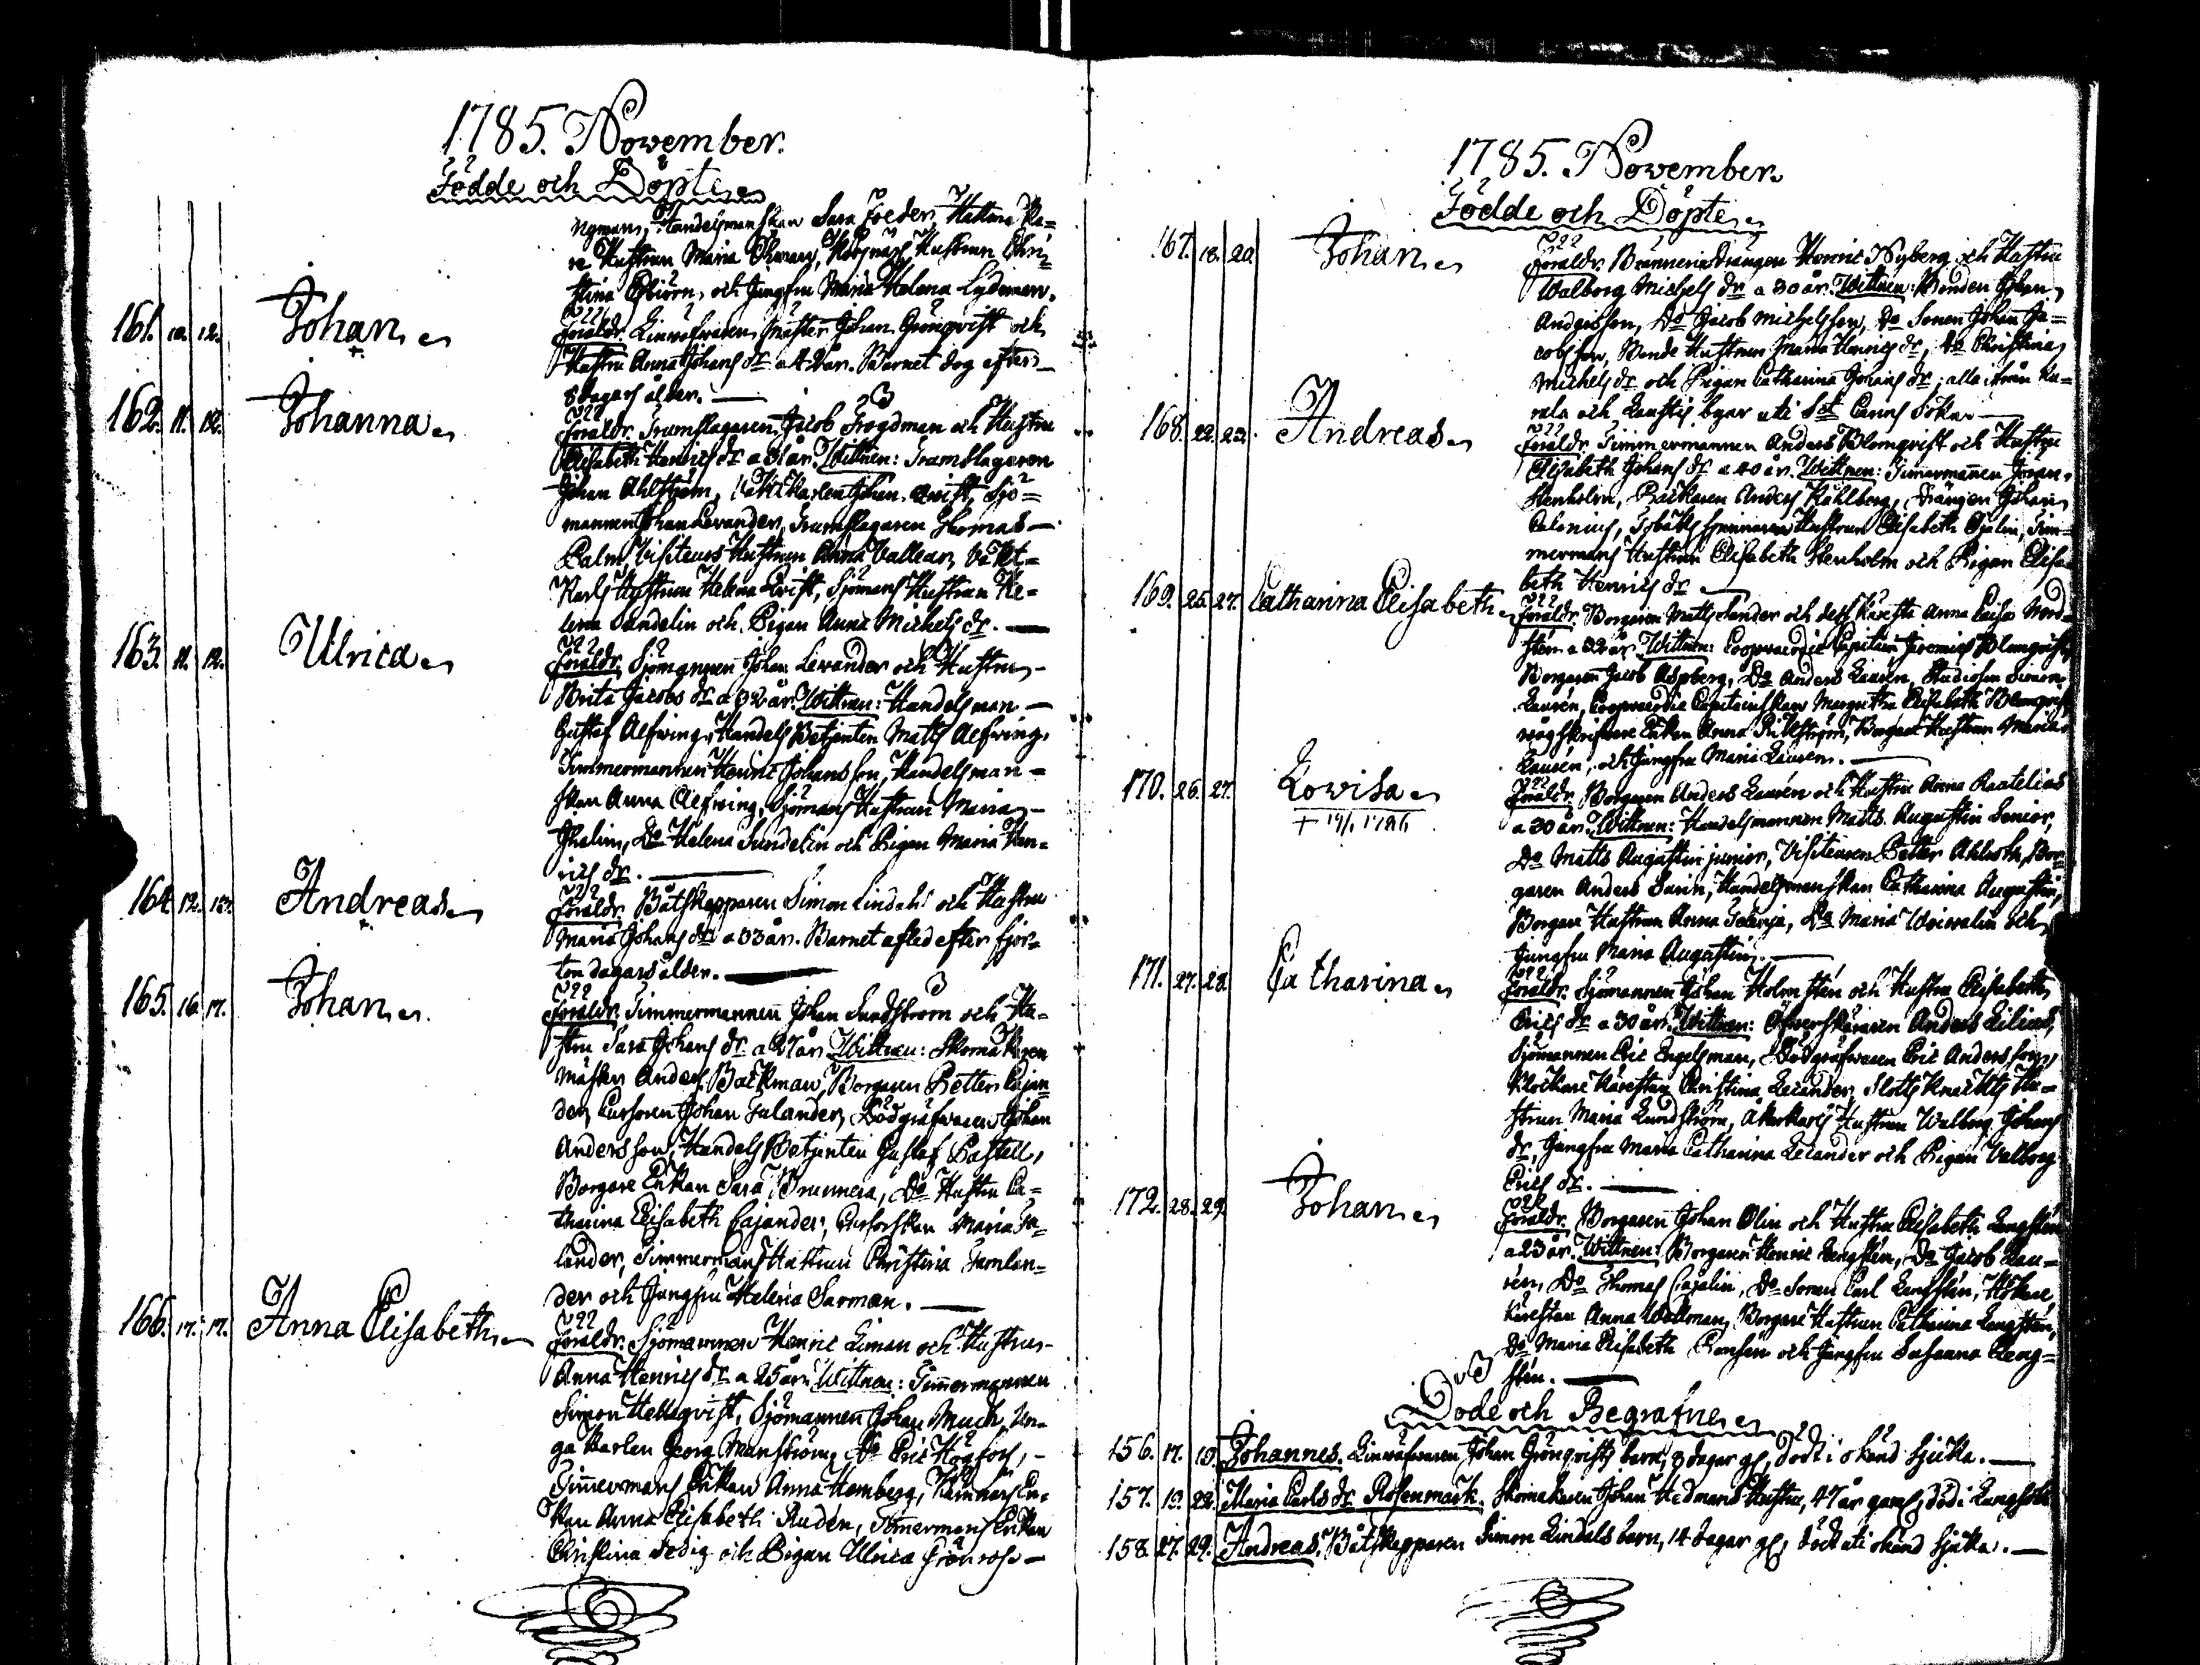 1785. November.
Födde och Döpte
ngman, Handelsmanskan Sara Foeder, Hattma¬
re Hustrun Maria Hustrun Chri¬
stina och Jungfru Maria Helena Lydeman.
161. 10. 12. Johan Föräldr. Linwäfwaren Mäster Johan Grönqvist och
Hustru Anna Johans dr a 42 år. Barnet dog efter
8 dagars ålder.
162. 11. 12. Johanna Föräldr. Trumslagaren Jacob Frogdman och Hustru
Elisabeth Henrics dr a 31 år. Wittnen: Trumslagaren
Johan Ahlström, Johan Qvist, Sjö=
mannen Johan Levander, Trumslagaren Thomas
Palm, Visiteurs Hustrun Anna Vallear, Vakt=
Karls Hustrun Helena Qvist, Sjömans Hustrun He=
lena Sundelin och Pigan Anna Michels dr.
163. 11. 12. Ulrica Föräldr. Sjömannen Johan Lewander och Hustru
Brita Jacobs dr a 32 år. Wittnen: Handelsman
Gustaf Alfwing, Handels Betjenten Matts Alfwing,
Timmermannen Henric Johansson, Handelsman=
skan Anna Alfwing, Sjömans Hustrun Maria
Thalin, Do Helena Sundelin och Pigan Maria Hen=
rics dr.
164. 12. 13. Andreas Föräldr. Båtskepparen Simon Lindahl och Hustru
Maria Johans dr a 33 år. Barnet afled efter fjor=
ton dagars ålder.
165. 16. 17. Johan Föräldr. Timmermannen Johan Lundstrom och Hu=
stru Sara Johans dr a 27 år Wittnen: Skomakaren
Mäster Anders Backman, Borgaren Petter Cajan=
der, Cursoren Johan Falander, Dödgräfwaren Johan
Andersson, Handels Betjenten Gustaf Castell,
Borgare Enkan Sara Brunnera, Do Hustru Ca=
tharina Elisabeth Cajander, Cursorskan Maria Fa=
lander, Timmermans Hustrun Christina Jernlan=
der och Jungfru Helena Sarman.
166. 17. 17. Anna Elisabeth Föräldr. Sjömannen Henric Liman och Hustru
Anna Henrics dr a 25 år. Wittnen: Timmermannen
Simon Hellsqvist, Sjömannen Johan Much, Un=
ga Karlen Georg Manström, Do Eric Högfors,
Timmermans Enkan Anna Homberg,
kan Anna Elisabeth Rudén, Timmermans Enkan
Christina och Pigan Ulrica Grönroos
1785. November.
Födde och Döpte
167. 18. 20. Johan Föräldr. Brännerie Drängen Henric Nyberg och Hustru
Walborg Michels dr a 30 år. Wittnen: Bonden Johan
Andersson, Do Jacob Michelsson, Do Sonen Johan Ja=
cobsson, Bonde Hustrun Maria Henrics dr, Do Christina
Michels dr och Pigan Catharina Johans dr, alla ifrån Ka=
rala och Lausteis byar uti S:t Carins Sokn
168. 22. 23. Andreas Föräldr. Timmermannen Anders Blomqvist och Hustru
Elisabeth Johans dr a 40 år. Wittnen: Timmermannen Johan
Stenholm, Backaren Anders Kahlberg, Drängen Johan
Calenius, Tobaks Spinnaren Hustrun Elisabeth Tim=
mermans Hustrun Elisabeth Stenholm och Pigan Elisa=
beth Henrics dr
169. 25. 27. Catharina Elisabeth Föräldr. Borgaren Matts Lander och dess Käresta Anna Caisa Nord=
stén a 32 år. Wittnen: Coopvaerdie Capitain Jeremias Blomqvist
Borgaren Jacob Aspberg, Do Anders Laurén, Studiosen Simon
Laurén, Coopvaerdie Capitainskan Margeta Elisabeth Blomqvist
Enkan Anna Borgare Hustrun Maria
Laurén, och Jungfru Maria Laurén.
170. 26. 27. Lowisa Föräldr. Borgaren Anders Laurén och Hustru Anna Raatelius
+ 14/1 1786 a 30 år. Wittnen: Handelsmannen Matts Augustin Senior,
Do Matts Augustin junior, Visiteuren Petter Ahlroth, Bor=
garen Anders Sarin, Handelsmanskan Catharina Augustin,
Borgare Hustrun Anna Do Maria Woiwalin och
Jungfru Maria Augustin.
171. 27. 28. Catharina Föräldr. Sjömannen Johan Holmstén och Hustru Elisabeth
Erics dr a 30 år. Wittnen: Anders Lilius,
Sjömannen Eric Engelsman, Dödgräfwaren Eric Andersson,
Klockare Kärestan Christina Leiander, Slotts Knackts Hu=
strun Maria Lundström, Åkarkarls Hustrun Walborg Johans
dr, Jungfru Maria Catharina Leiander och Pigan Valborg
Erics dr.
172. 28. 29. Johan Föräldr. Borgaren Johan Olin och Hustru Elisabeth Lengstén
a 23 år. Wittnen: Borgaren Henric Lengstén, Do Jacob Lau=
rén, Do Thomas Cajalin, Do Sonen Carl Lengstén, Hökare
Kärestan Anna Wollman, Borgare Hustrun Catharina Lengstén,
Do Maria Elisabeth och Jungfru Susanna Leng=
stén.
Döde och Begrafne
156. 17. 19. Johannes. Linwäfwaren Johan Grönqvists barn, 8 dagar gl, död i okänd sjuka.
157. 19. 22. Maria Carls dr Rosenmarck. Skomakaren Johan Hedmans Hustru, 47 år gaml, död i Lungsot
158. 27. 29. Andreas. Båtskepparen Simon Lindals barn, 14 dagar gl, död uti okänd sjuka.